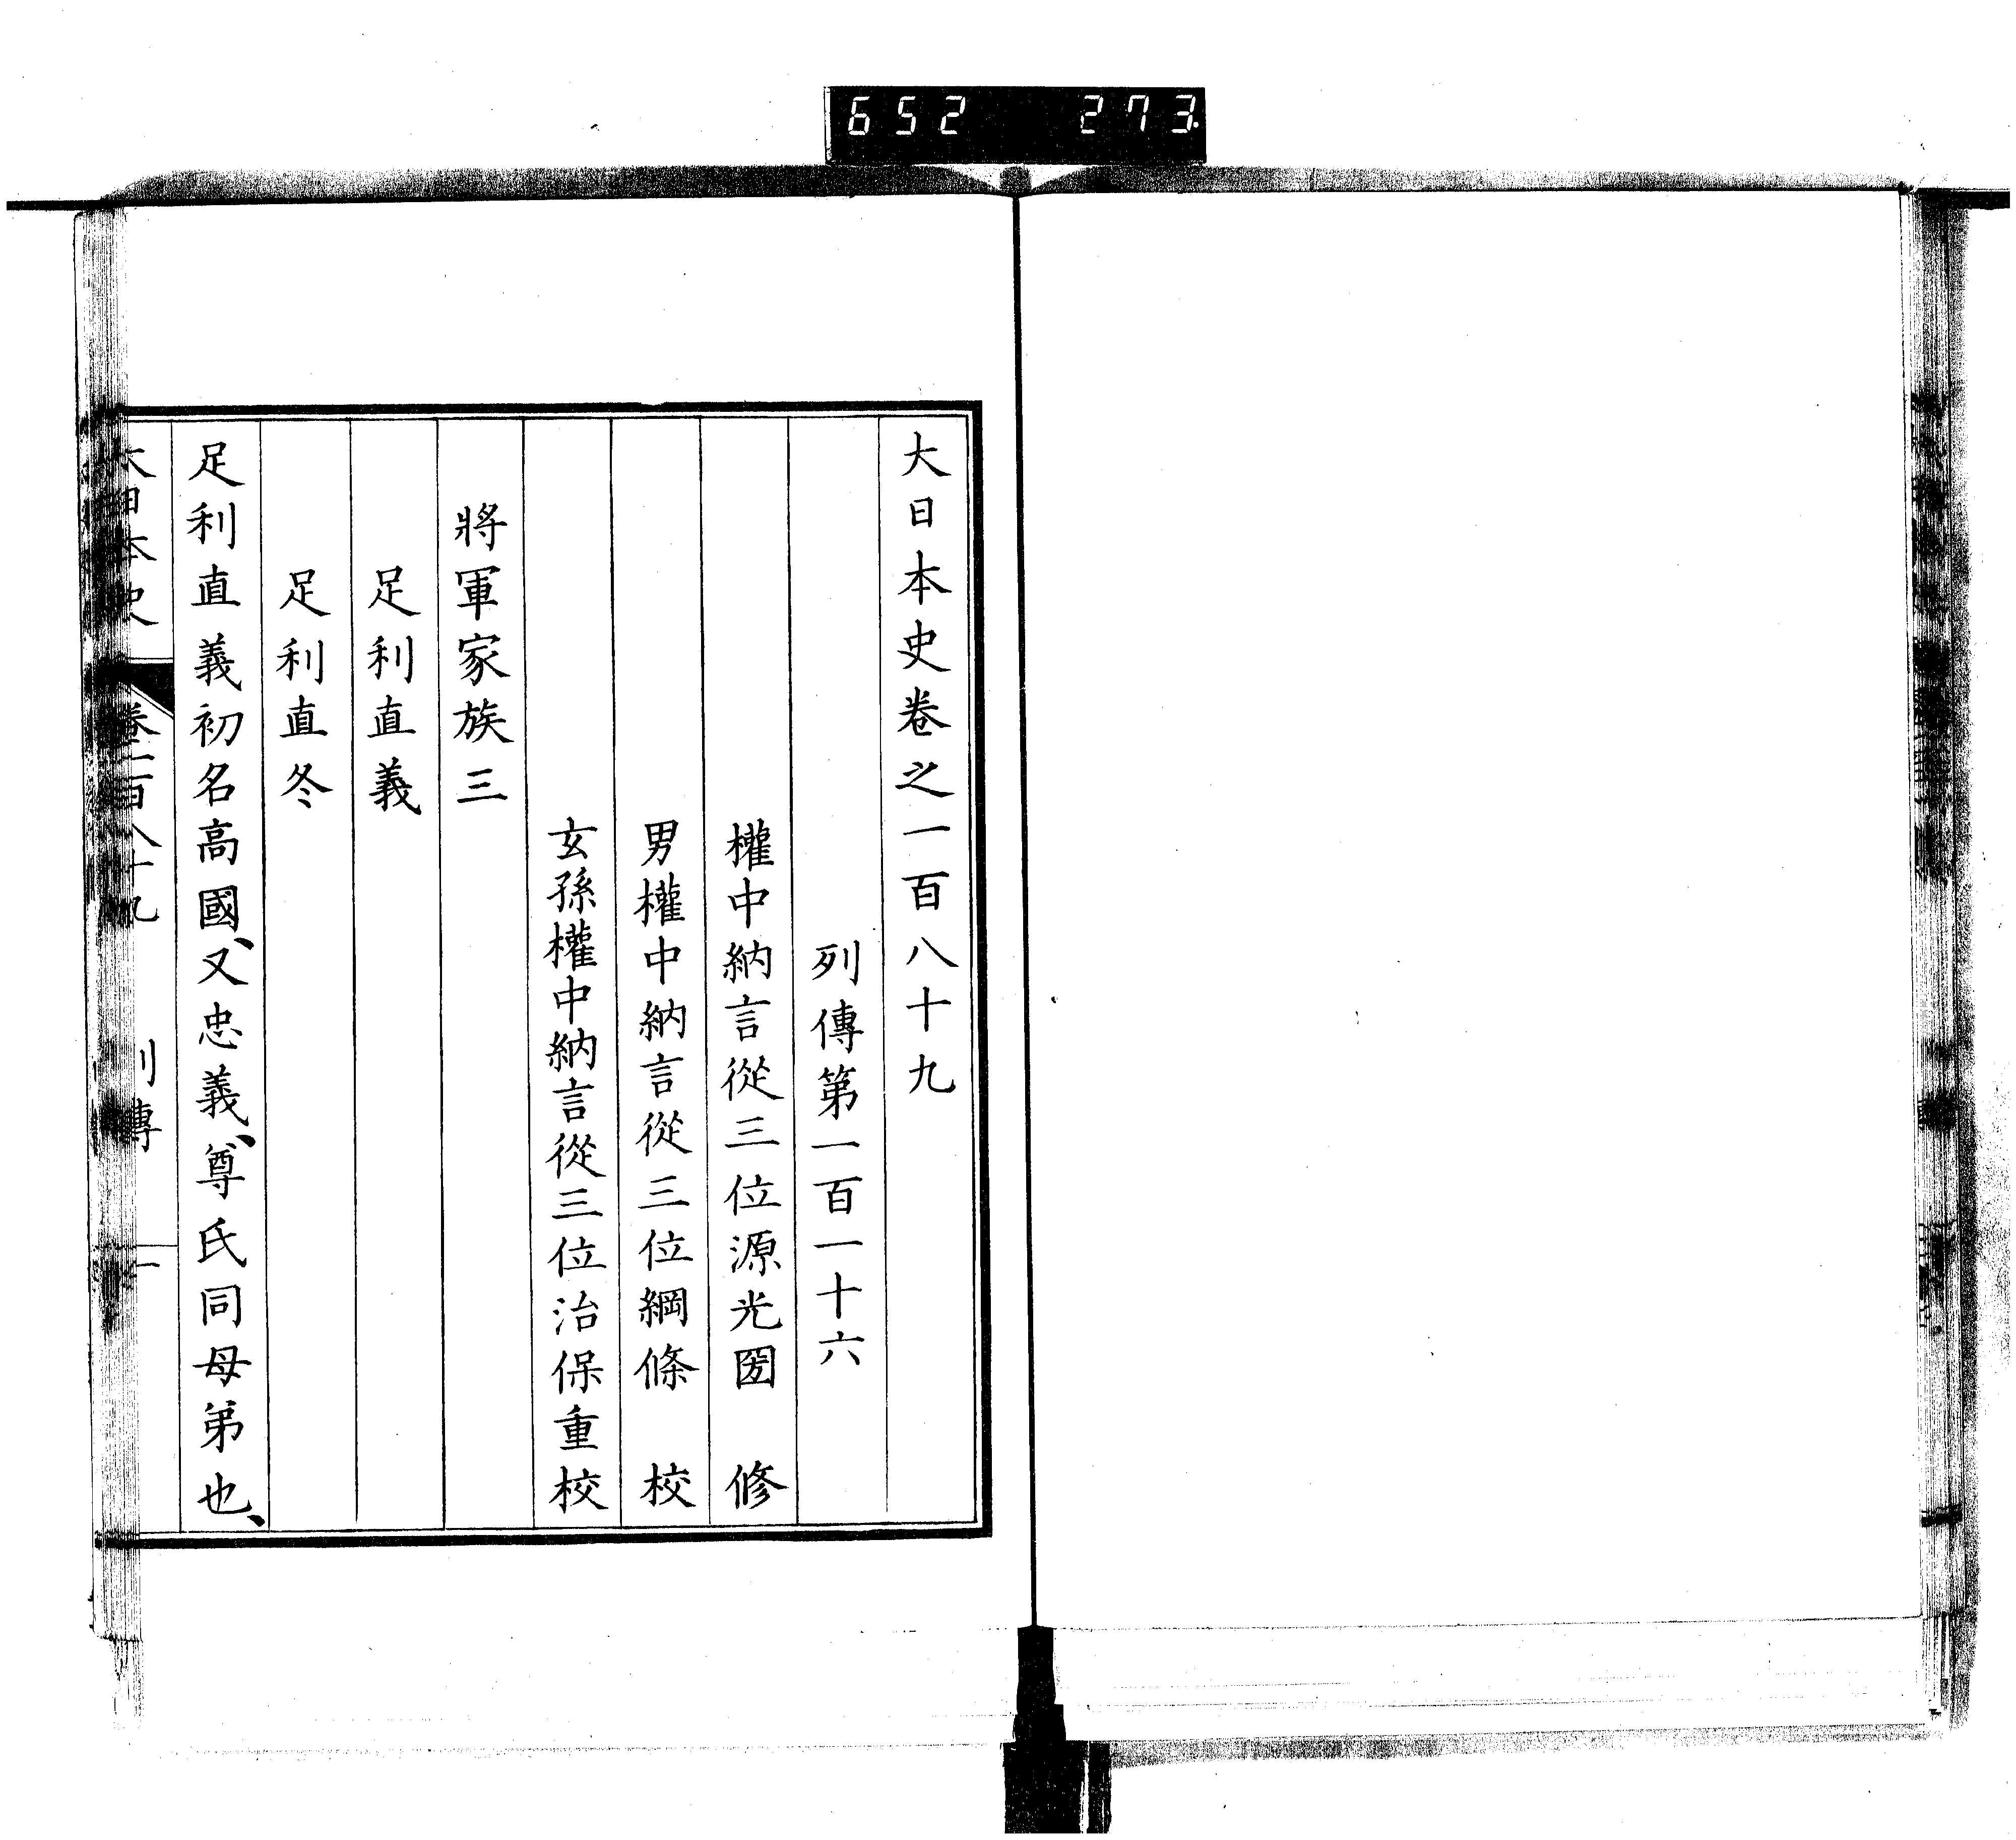 652 273
大日本史卷之一百八十九
列傳第一百一十六
權中納言從三位源光圀 修
男權中納言從三位綱條 校
玄孫權中納言從三位治保重校
將軍家族三
足利直義
足利直冬
足利直義初名高國、又忠義、尊氏同母弟也、
大日本史 卷一百八十九 列傳 一